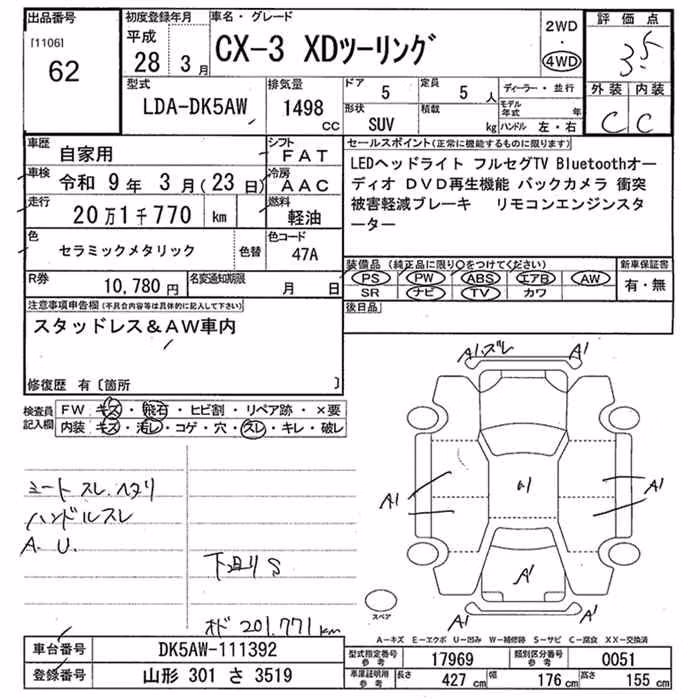 出品番号
[1106]
62
初度登録年月
平成
28 3月
車名・グレード
CX-3 XDツーリング
2WD
・
4WD
評価点
3.5
外装 内装
C C
型式
LDA-DK5AW
排気量
1498
cc
ドア
5
定員
5人
形状
SUV
積載
kg
ディーラー・並行
モデル年式 年
ハンドル 左・右
車歴
自家用
シフト
FAT
車検 令和 9年 3月(23日)
冷房
AAC
走行
20万1千770 km
燃料
軽油
色
セラミックメタリック
色替
色コード
47A
R券
10,780円
名変通知期限
月 日
セールスポイント(正常に機能するものに限ります)
LEDヘッドライト フルセグTV Bluetoothオー
ディオ DVD再生機能 バックカメラ 衝突
被害軽減ブレーキ リモコンエンジンスタ
ーター
装備品(純正品に限り○をつけてください)
新車保証書
PS PW ABS エアB AW
SR ナビ TV カワ
有・無
後日品
注意事項申告欄(不具合内容等は具体的に記入して下さい)
スタッドレス&AW車内
修復歴 有〔箇所 〕
検査員
記入欄
FW キズ・飛石・ヒビ割・リペア跡・×要
内装 キズ・汚レ・コゲ・穴・スレ・キレ・破レ
シートスレ.ヘタリ
ハンドルスレ
A.U.
下廻りS
オド 201.771km
A1.ズレ A1
A1 A1 A1
A1
A1 A1
スペア
A-キズ E-エクボ U-凹み W-補修跡 S-サビ C-腐食 XX-交換済
車台番号
DK5AW-111392
登録番号
山形 301 さ 3519
型式指定番号
参考
17969
類別区分番号
参考
0051
車庫証明用
参考
長さ
427 cm
幅
176 cm
高さ
155 cm